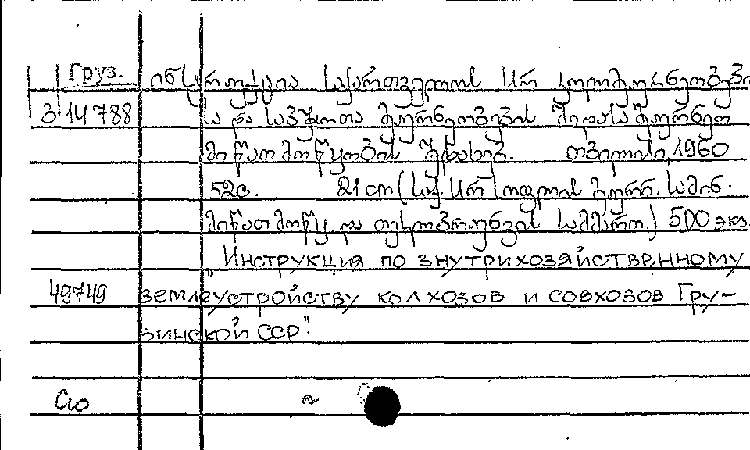 Груз. ინსტრუქცია საქართველოს სსრ კოლმეურნეობები-
3 14788 სა და საბჭოთა მეურნეობების შიდასამეურნეო
მიწათმოწყობის შესახებ. თბილისი, 1960
52с. 21 cm (საქ. სსრ სოფლის მეურნ. სამინ.
მიწათმოწყ. და თესლბრუნვის სამმართ.) 500 экз.
"Инструкция по внутрихозяйственному
49749 землеустройству колхозов и совхозов Гру-
зинской ССР".